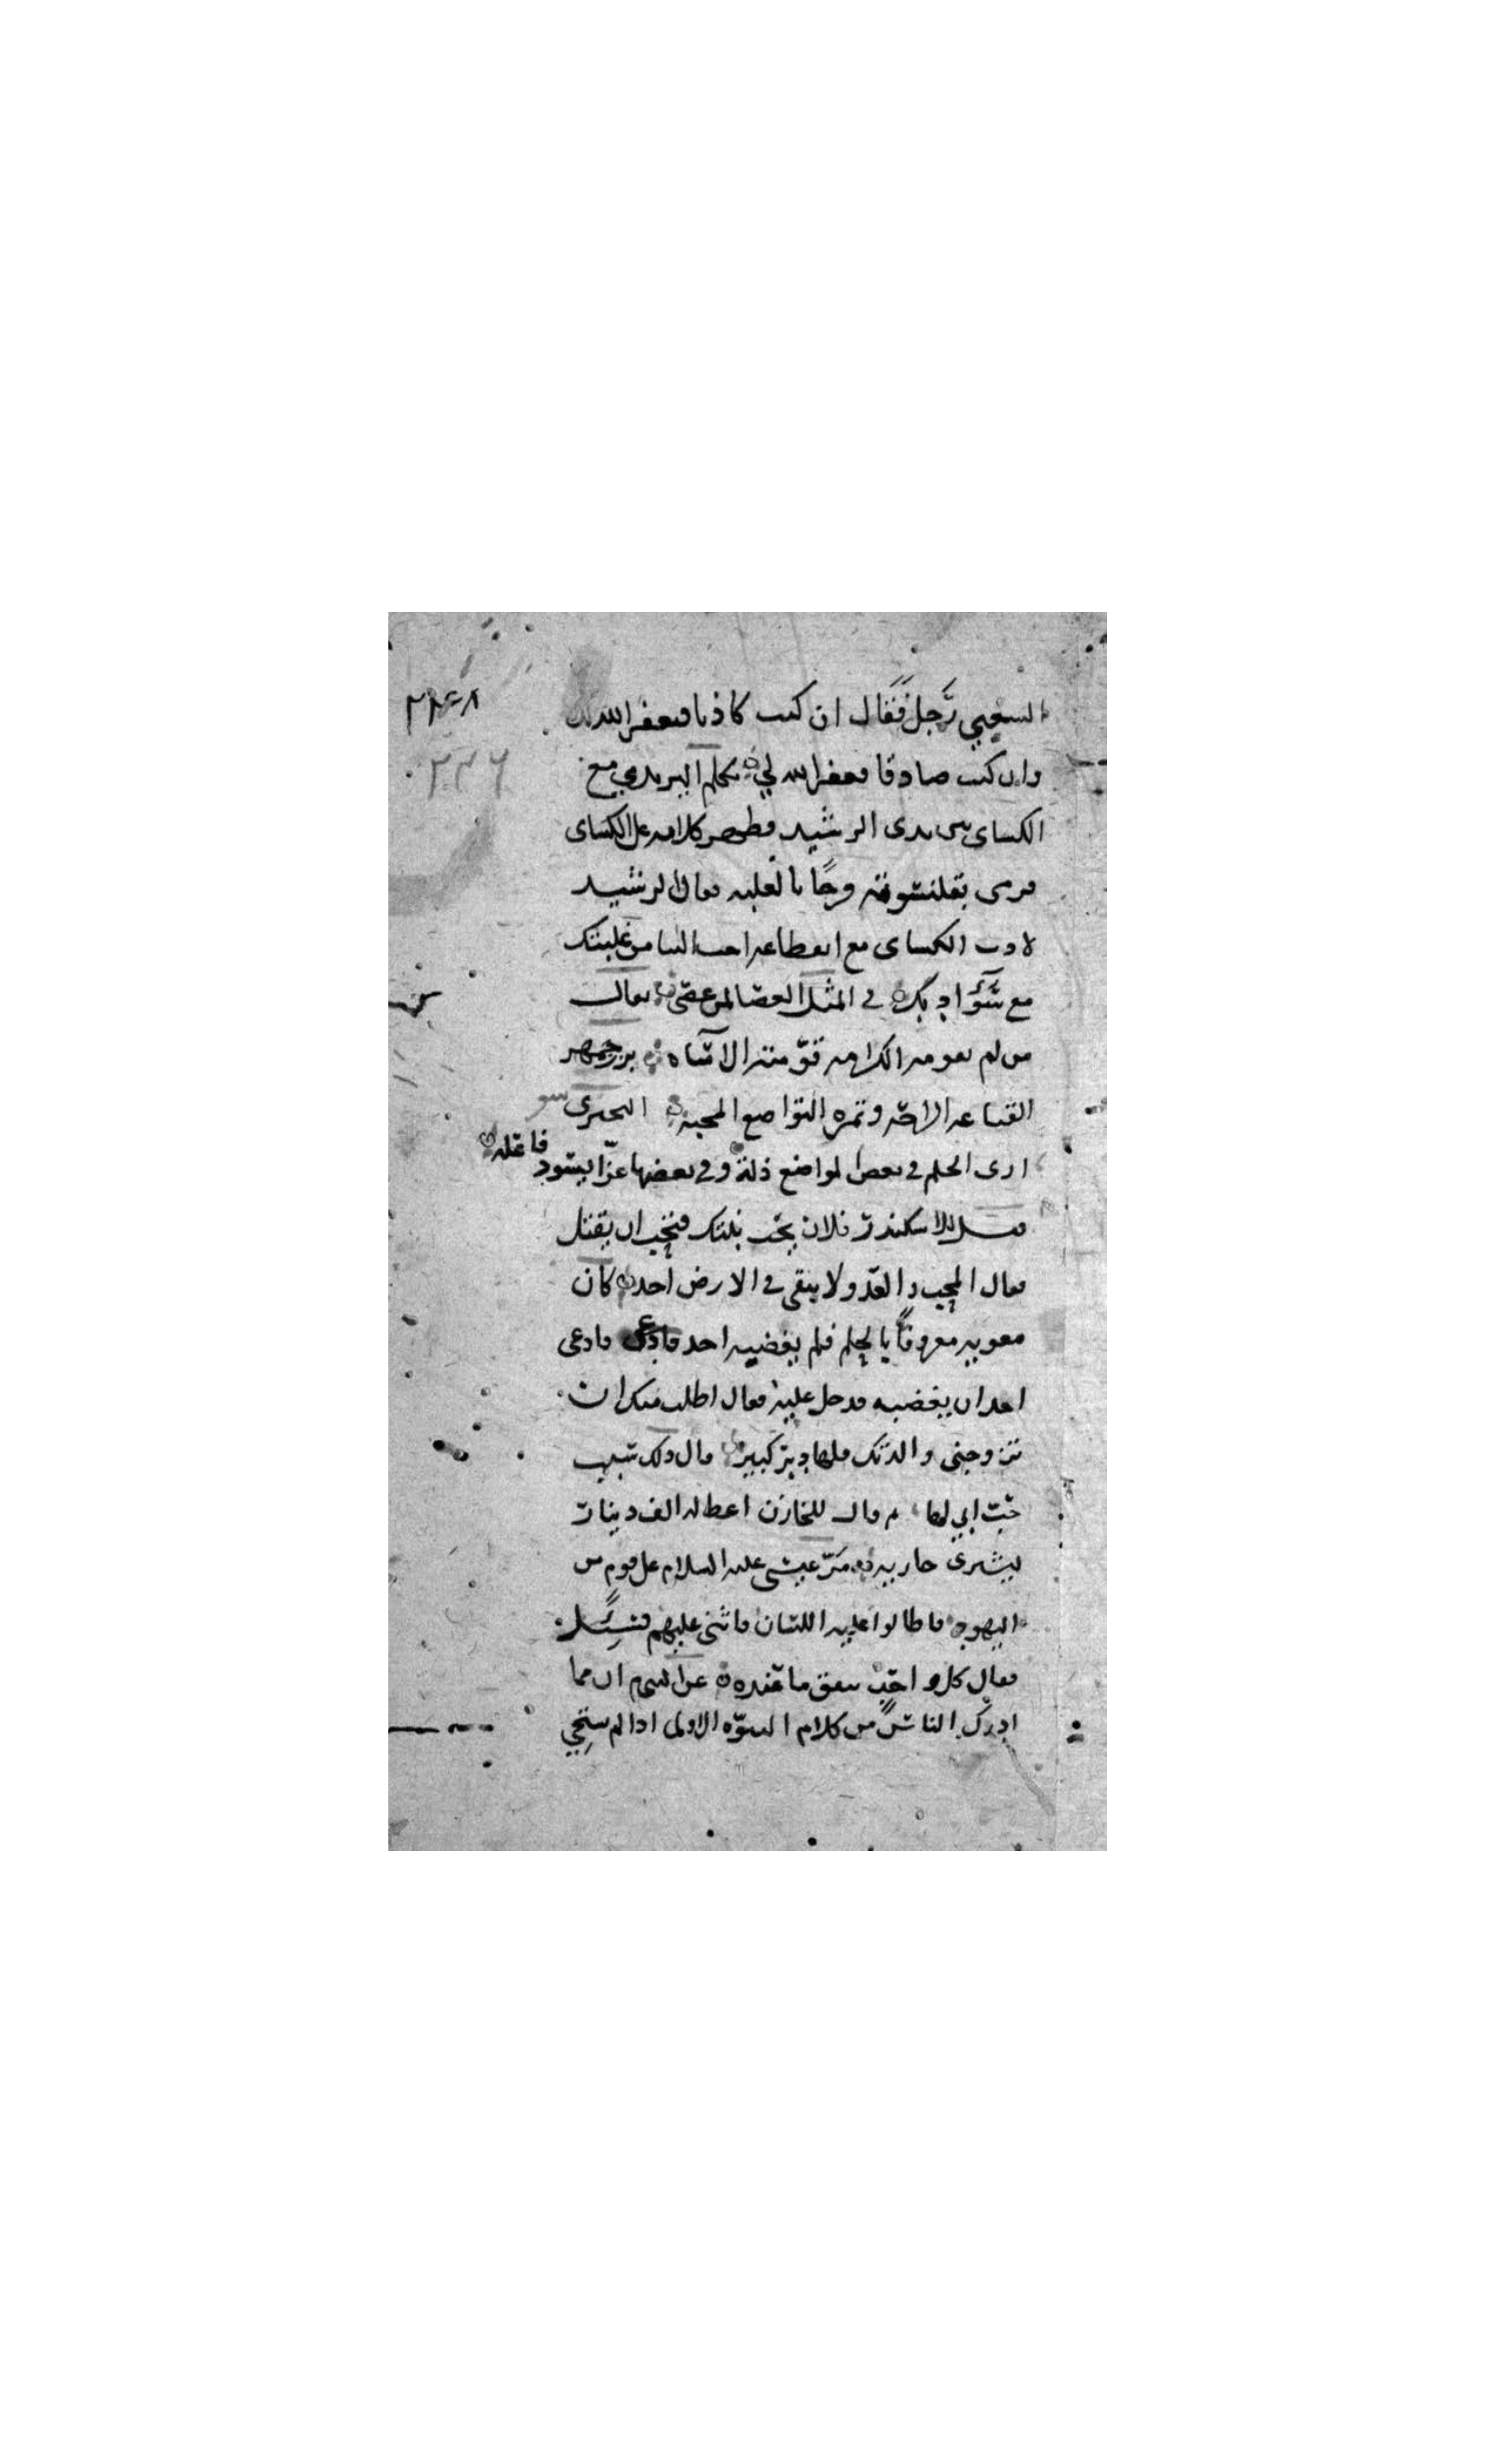 الشعبي رجل فقال ان كنت كاذبا فغفر الله لك
وان كنت صادقا فغفر الله لي تكلم اليزيدي مع
الكساى بين يدى الرشيد فظهر كلامه على الكساى
فرمى بقلنسوته فرحًا بالغلبه فقال الرشيد
لادب الكساى مع انقطاعه احب الينا من غلبتك
مع سوٓء ادبك في المثل العصا لمن عصى يقال
من لم تقومه الكرامه قوّمته الاهانه بزرجمهر
القناعه الراحه وثمره التواضع المحبه البحترى
ارى الحلم في بعض المواضع ذلة وفي بعضها عزّا يسود فاعله
قيل للاسكندر فلان يحب بنتك فيجب ان يقتل
فقال المحب والعدو لا يبقى في الارض احد كان
معويه معروفًا بالحلم فلم يغضبه احد فادعى
احد ان يغضبه فدخل عليه فقال اطلب منك ان
تزوجني والدتك فلها دبر كبير قال ذلك سبب
حبّ ابي لها ثم قال للخازن اعطه الف دينار
ليشترى جاريه مَرّ عيسى عليه السلام على قوم من
اليهود فاطالوا عليه اللسان فاثنى عليهم فسُئل
فقال كل واحد ينفق ما عنده عن النبي ان مما
ادرك الناس من كلام النبوّه الاولى اذا لم تستحي